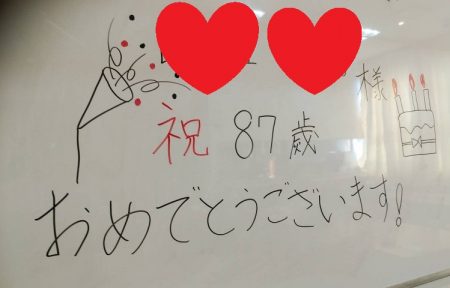 様
祝 87歳
おめでとうございます!